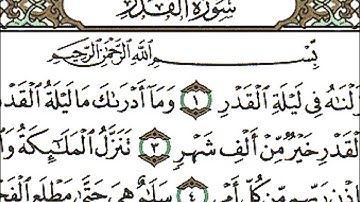 سُورَةُ الۡقَدۡرِ
بِسۡمِ ٱللَّهِ ٱلرَّحۡمَٰنِ ٱلرَّحِيمِ
لۡنَٰهُ فِي لَيۡلَةِ ٱلۡقَدۡرِ ١ وَمَآ أَدۡرَىٰكَ مَا لَيۡلَةُ ٱلۡقَد
لۡقَدۡرِ خَيۡرٞ مِّنۡ أَلۡفِ شَهۡرٖ ٣ تَنَزَّلُ ٱلۡمَلَٰٓئِكَةُ وَٱ
إِذۡنِ رَبِّهِم مِّن كُلِّ أَمۡ ٤ سَلَٰمٌ هِيَ حَتَّىٰ مَطۡلَعِ ٱلۡفَج